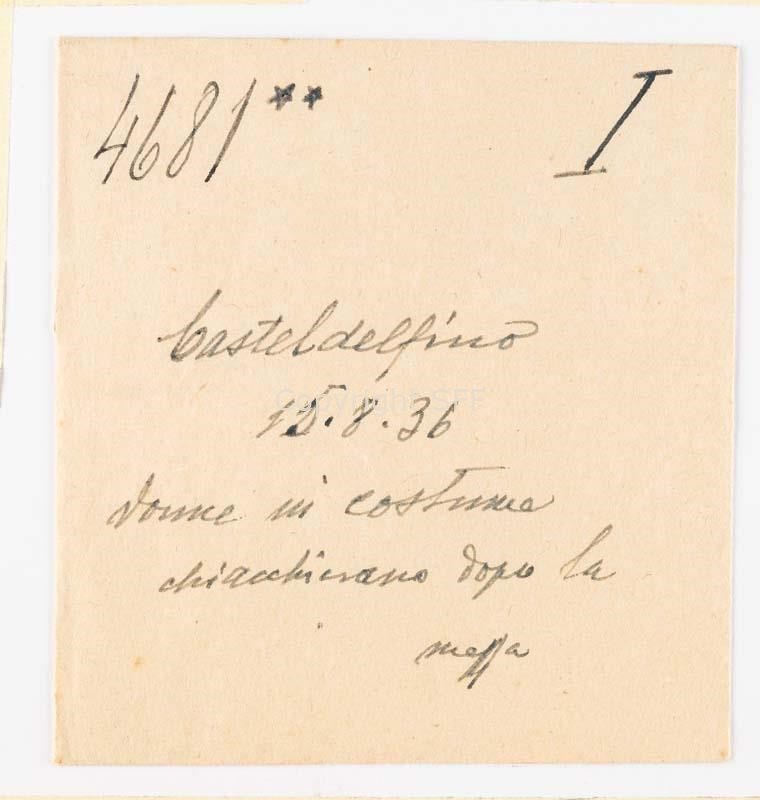 4681** I
Casteldelfino
15.8.36
donne in costume
chiacchierano dopo la
messa